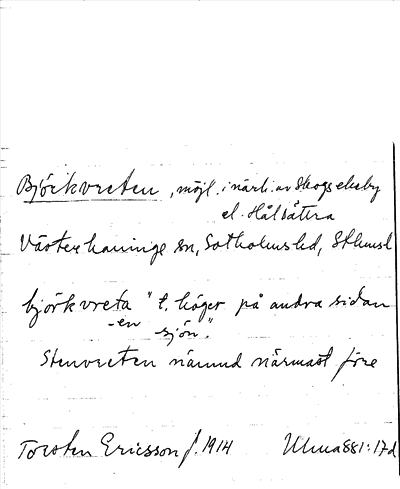 Björkvreten, möjl. i närh. av Skogsekeby
el. Hålsättra
Västerhaninge sn, Sotholms hd, Sthmsl
björkvreta "t. höger på andra sidan
-en sjön".
Stenvreten nämnd närmast före
Torsten Ericsson f. 1914 Ulma 881:17d